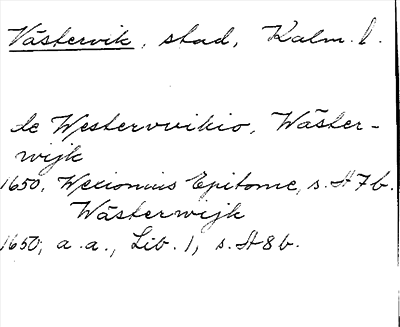 Västervik, stad, Kalm. l.
de Westervvikio, Wäster-
wijk
1650, Wexionius Epitome, s. H7b.
Wästerwijk
1650, a.a., Lib. 1, s. H8b.